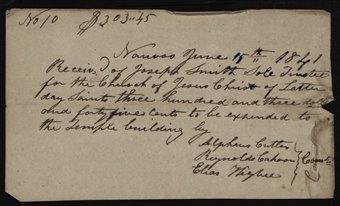 No 10 $303.45
Nauvoo June 15th 1841
Received of Joseph Smith Sole Trustee
for the Church of Jesus Christ of Latter
day Saints three hundred and three dol
and forty five cents to be expended to
the Temple building by
Alpheus Cutler
Reynolds Cahoon
Elias Higbee